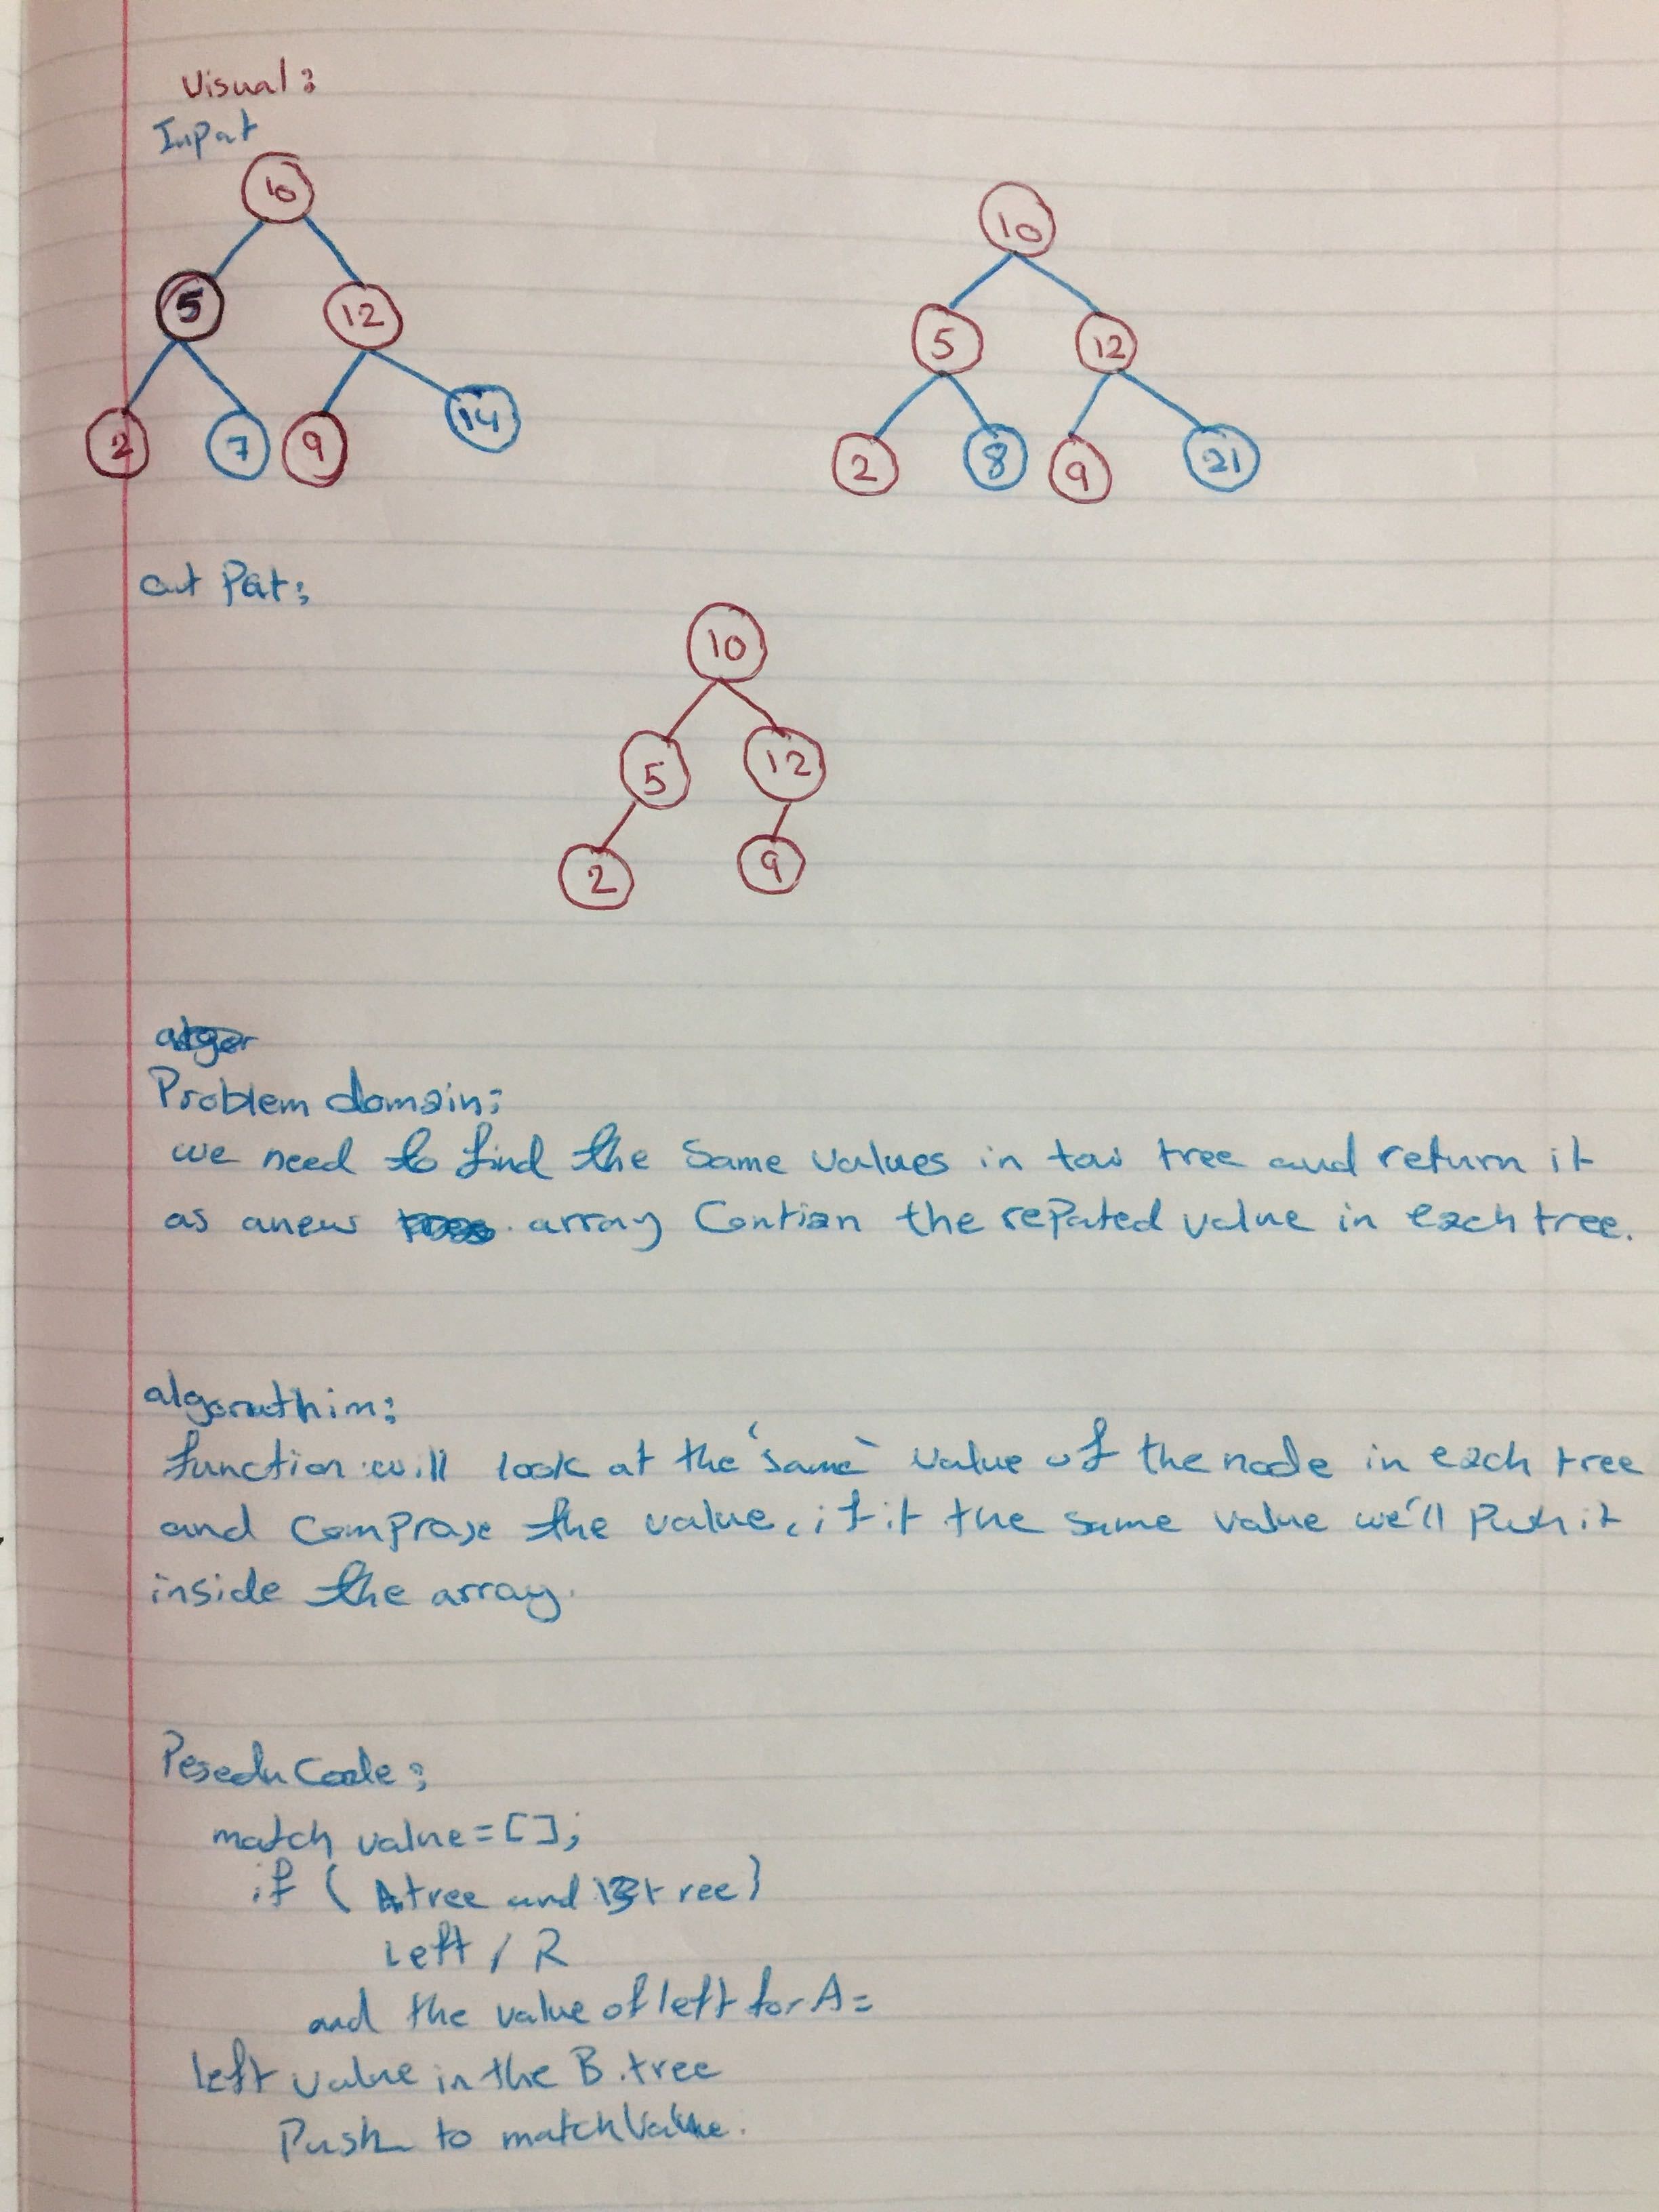 Visual:
Input
10
10
5
12
5
12
2
7
9
14
2
8
9
21
out Put:
10
5
12
2
9
Problem domain:
we need to find the Same Values in tow tree and return it
as anew array Contian the repated value in each tree.
algorathim:
function will look at the 'same' value of the node in each tree
and Comprase the value, if it the same value we'll Push it
inside the array.
Pesedu Code:
match value = [];
if ( A tree and B tree )
Left / R
and the value of left for A =
left value in the B.tree
Push to matchValue.